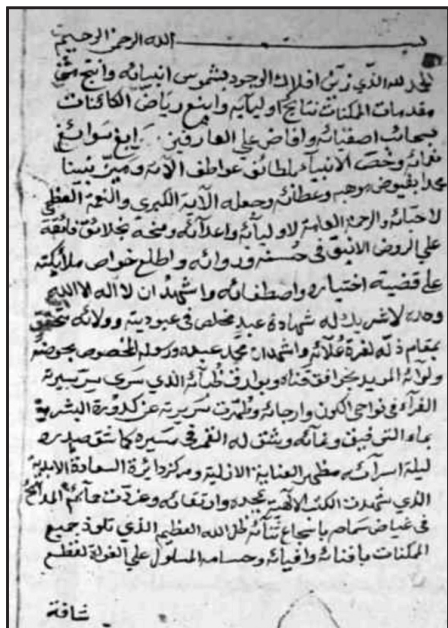 بسم الله الرحمن الرحيم
الحمد لله الذي زين افلاك الوجود بشموس انبيائه وانتج من
مقدمات الممكنات نتايج اوليآيه واينع رياض الكائنات
بسحائب اصفيائه وافاض علي العارفين سوابغ
نعمائه وخص الانبيآء لطائف عواطف الآئه وميز نبينا
محمدا بفيوض موهبه وعطائه وجعله الآية الكبرى والنعمة العظمى
لاحبائه والرحمة العامة لاوليآئه واعدآئه ومنحه بخلائق فائقة
علي الروض الانيق في حسنه وروائه واطلع خواص ملائكته
على قضية اختياره واصطفائه واشهد ان لا اله الا الله
وحده لا شريك له شهادة عبد مخلص في عبوديته وولائه متحقق
بمقام ذله لعزة علائه واشهد ان محمد عبده ورسوله المخصوص بحوضه
ولوائه المويد الذي سرى سر سيرته
في نواحي الكون وارجائه وطهرت سريرته عن كدورة البشرية
بماء التوفيق ونقائه وشق له القمر في مسيره كما شق صدره
ليلة اسرآئه مظهر العناية الازلية ومركز دائرة السعادة الابدية
الذي شهدت الكتب الالهية بمجده وارتقائه وغردت حمائم المدائح
في غياض باسجاع ثنآئه ظل الله العظيم الذي تلوذ جميع
الممكنات بافنائه وافيائه وحسامه المسلول علي الغواة لقطع
شافة